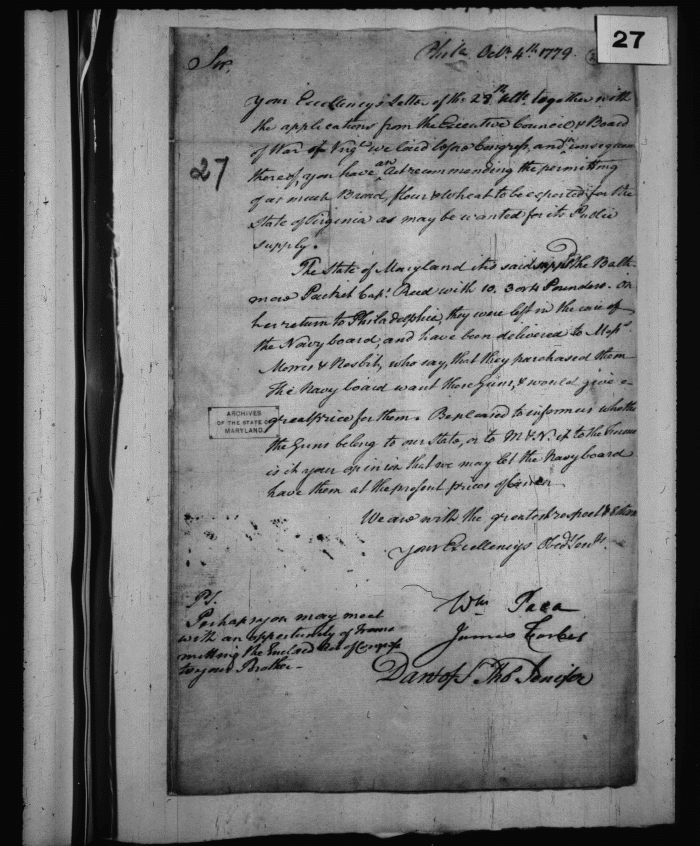 27
Phila Octr. 4th 1779.
Sir,
Your Excellency's Letter of the 28th ulto. together with
the applications from the Executive Council & Board
of War of Virga. we laid before Congress, and in consequence
27
thereof you have an Act recommending the permitting
of as much Bread, flour & Wheat to be exported for the
State of Virginia as may be wanted for its Public
supply.
The State of Maryland it is said suppd. the Balti-
more Packet Capt. Read with 10. 3 or 4 Pounders. On
her return to Philadelphia, they were left in the care of
the Navy board, and have been delivered to Messrs.
Morris & Nesbit, who say, that they purchased them
The Navy board want those Guns, & would give a
great price for them. Be pleased to inform us whether
ARCHIVES
OF THE STATE OF
MARYLAND
the Guns belong to our State, or to M & N. if to the former
is it your opinion that we may let the Navy board
have them at the present prices of
We are with the greatest respect &
Your Excellencys Obedt Servts.
PS.
Perhaps you may meet
with an opportunity of trans
mitting the Enclosed Act of Congress
to your Brother-
Wm Paca
James Forbes
Dan of St Thos Jenifer